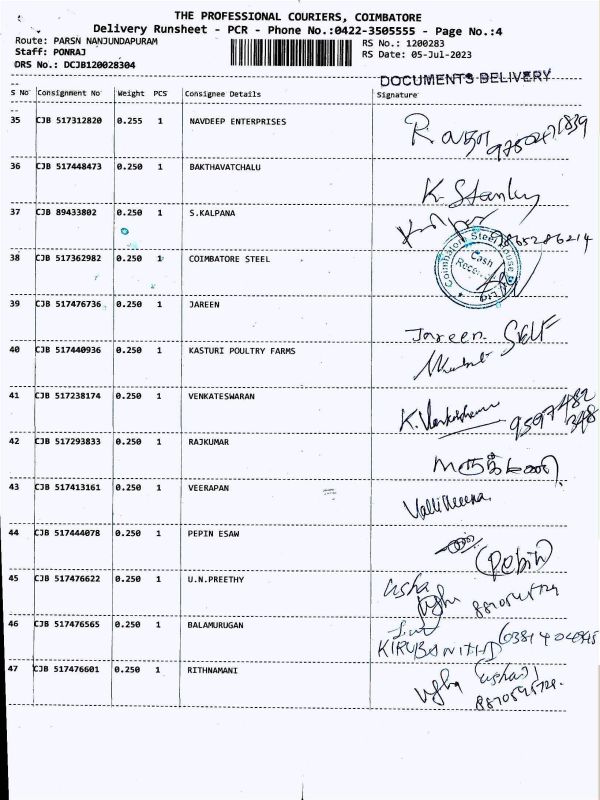 THE PROFESSIONAL COURIERS, COIMBATORE
Delivery Runsheet - PCR - Phone No.:0422-3505555 - Page No.:4
Route: PARSN NANJUNDAPURAM RS No.: 1200283
Staff: PONRAJ RS Date: 05-Jul-2023
DRS No.: DCJB120028304
DOCUMENTS DELIVERY
S No Consignment No Weight PCS Consignee Details Signature
35 CJB 517312820 0.255 1 NAVDEEP ENTERPRISES
36 CJB 517448473 0.250 1 BAKTHAVATCHALU
K. Stanley
37 CJB 89433802 0.250 1 S.KALPANA
9865286214
38 CJB 517362982 0.250 1 COIMBATORE STEEL
Coimbatore Steel House
Cash
39 CJB 517476736 0.250 1 JAREEN
Jareen. SELF
40 CJB 517440936 0.250 1 KASTURI POULTRY FARMS
41 CJB 517238174 0.250 1 VENKATESWARAN
9597482
348
42 CJB 517293833 0.250 1 RAJKUMAR
43 CJB 517413161 0.250 1 VEERAPAN
Valli Meena
44 CJB 517444078 0.250 1 PEPIN ESAW
45 CJB 517476622 0.250 1 U.N.PREETHY
usha
46 CJB 517476565 0.250 1 BALAMURUGAN
KIRUBANITHI
47 CJB 517476601 0.250 1 RITHNAMANI
(usha)